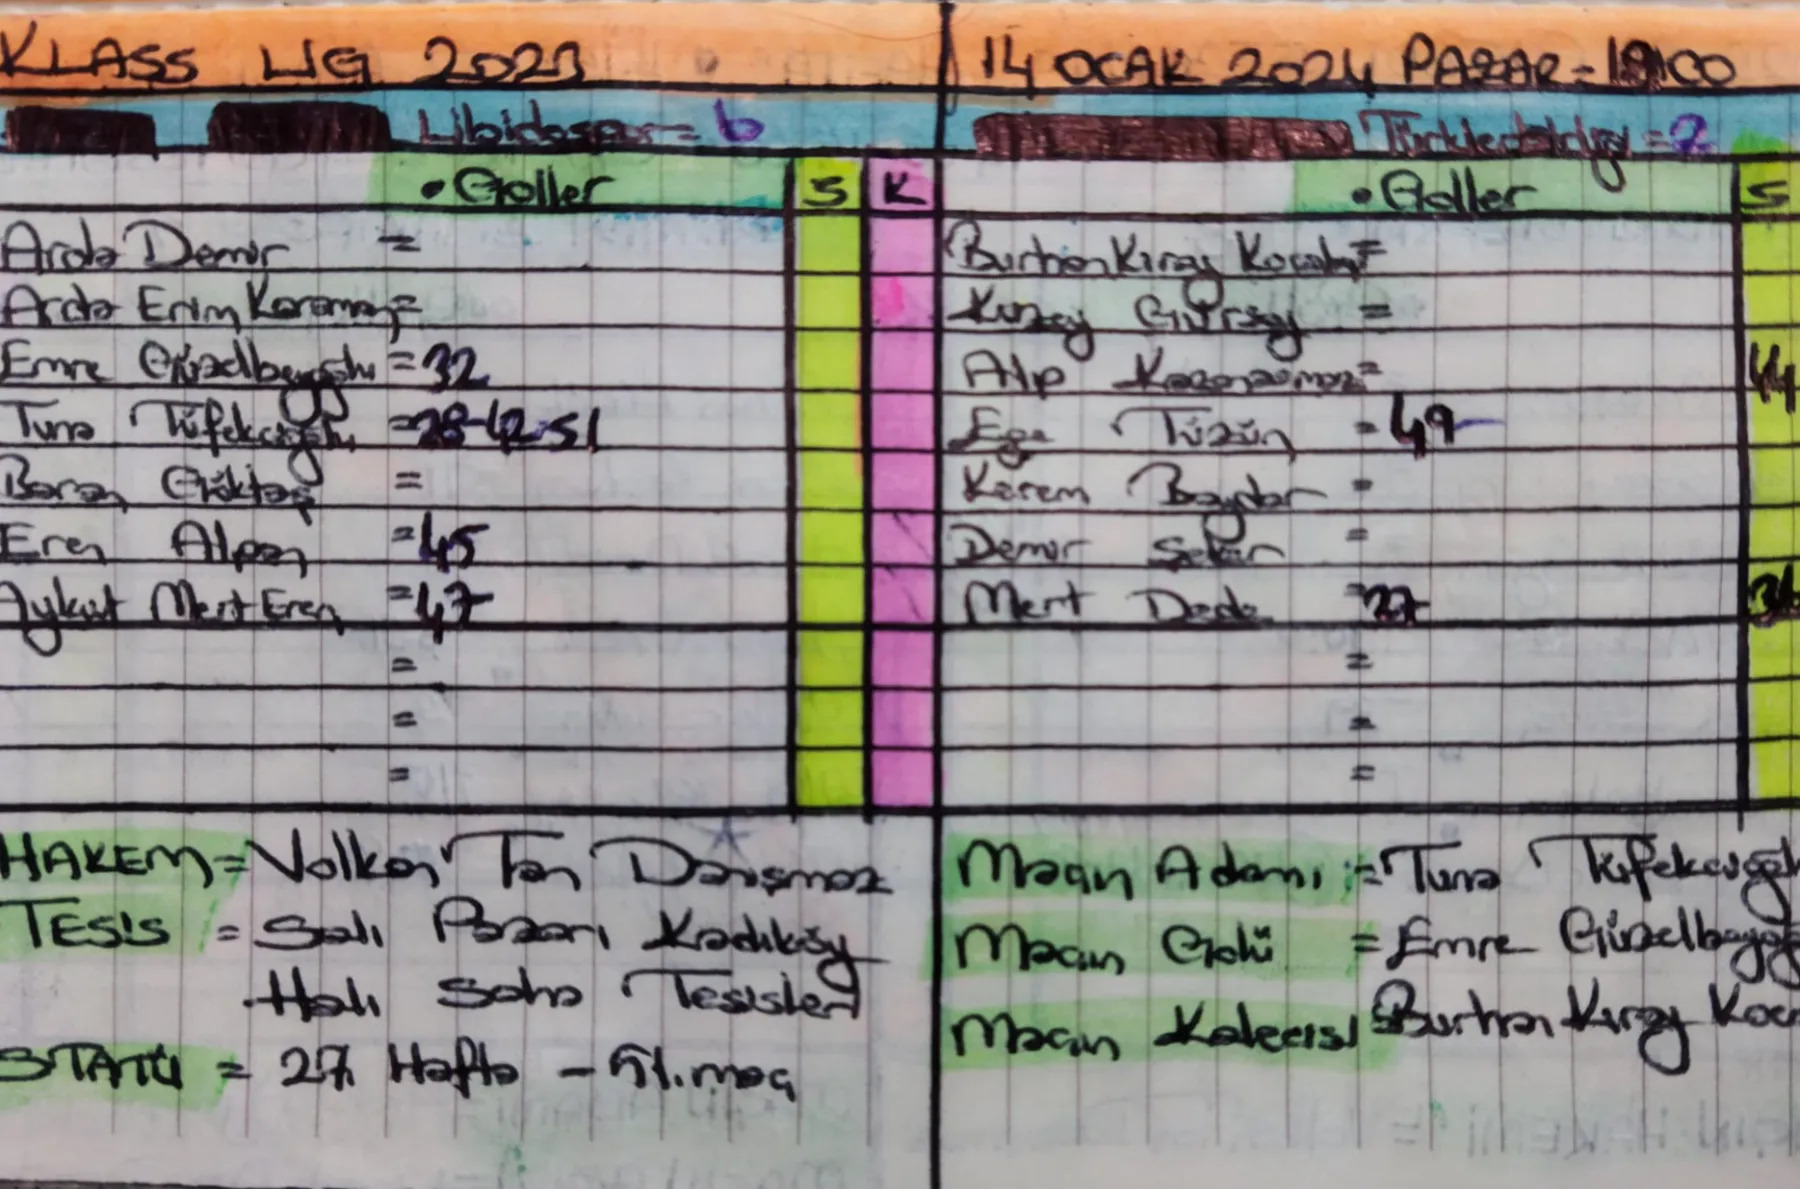 KLASS LİG 2023
14 OCAK 2024 PAZAR - 19:00
Libidospor = 6
= 2
• Goller S K
• Goller S
Arda Demir =
Arda Erim Karaman =
Emre Güzelbeyoğlu = 32
Tuna Tüfekcioğlu = 28-42-51
Baran Göktaş =
Eren Alpan = 45
Aykut Mert Eren = 47
=
=
=
Burhan Kıray =
Kuzay Gürsoy =
Alp Kazanasmaz = 44
Ege Tüzün = 49
Kerem Baydar =
Demir Şeker =
Mert Dede = 27
=
=
=
HAKEM = Volkan Tan Danışmaz
TESİS = Salı Pazarı Kadıköy
Halı Saha Tesisleri
STATÜ = 27. Hafta - 51. maç
Maçın Adamı := Tuna Tüfekcioğl
Maçın Golü = Emre Güzelbeyoğ
Maçın Kalecisi = Burhan Kıray